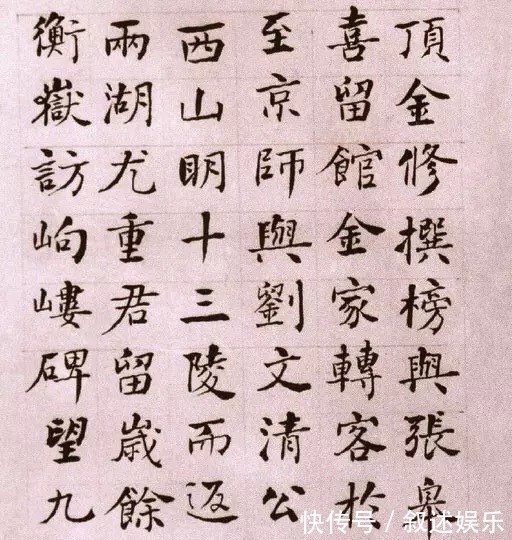 頂金修撰榜與張
喜留館金家轉客於
至京師與劉文清公
西山明十三陵而返
兩湖尤重君留歲餘
衡嶽訪岣嶁碑望九
快传号/叙述娱乐